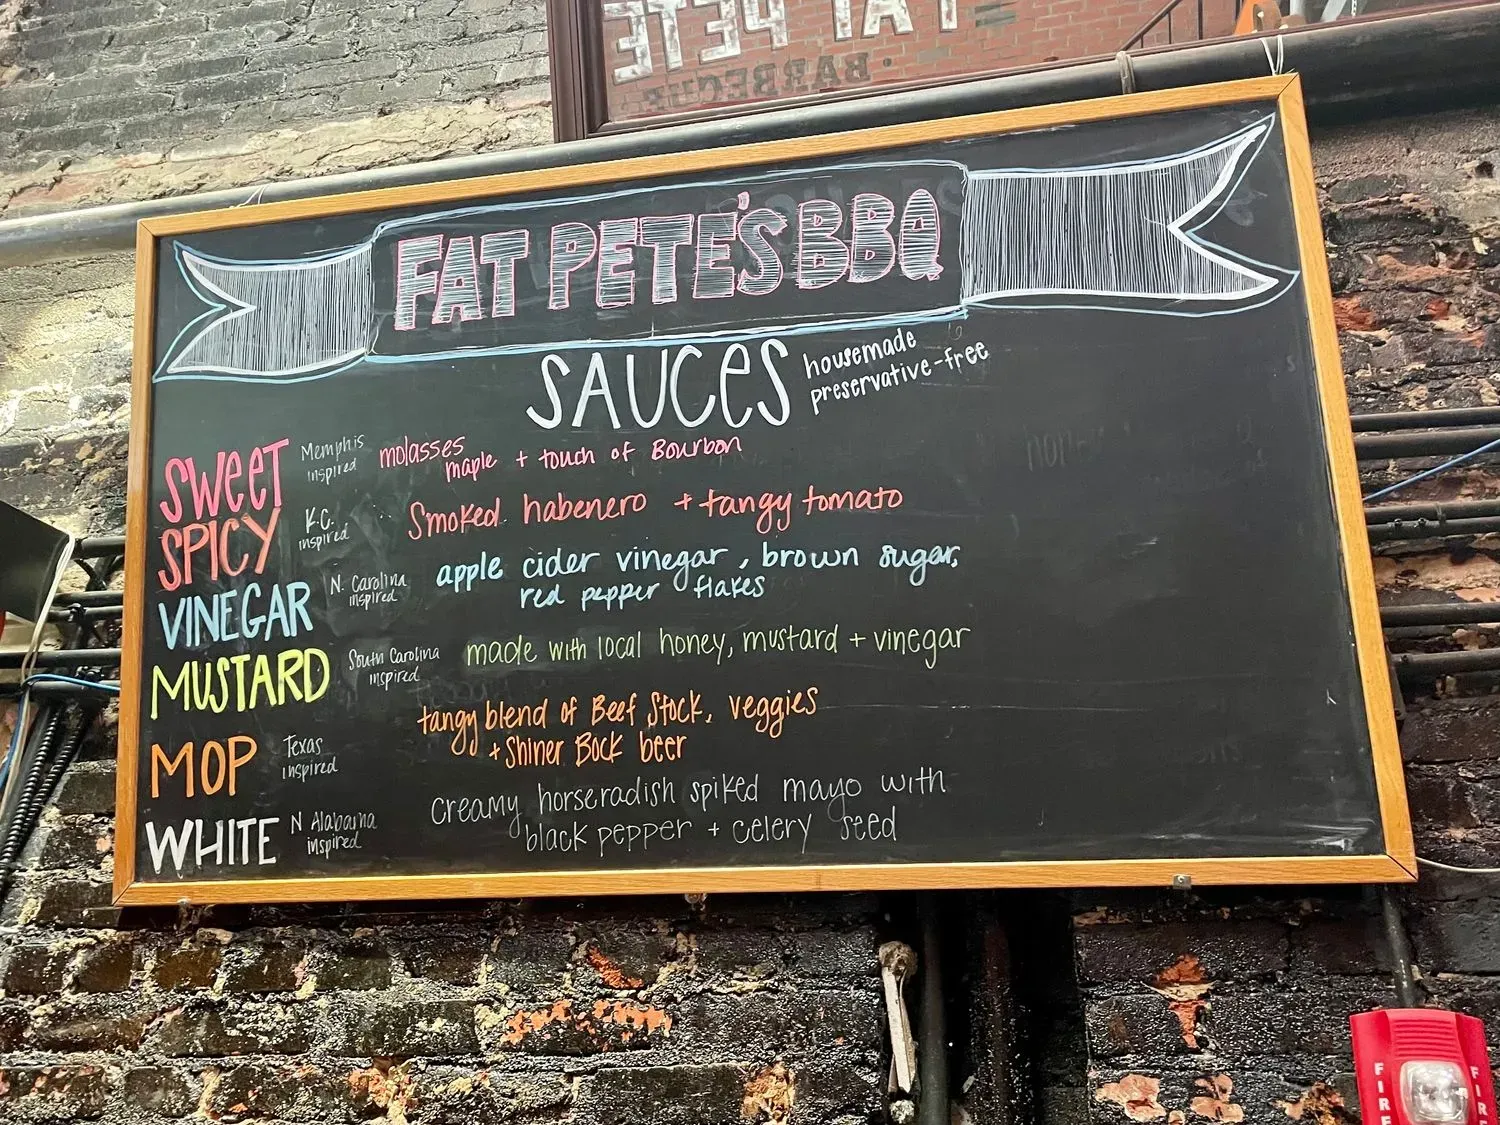 FAT PETE
BARBECUE
FAT PETE'S BBQ
SAUCES
housemade
preservative-free
SWEET
Memphis
inspired
molasses
maple + touch of Bourbon
SPICY
K.C.
inspired
Smoked habenero + tangy tomato
VINEGAR
N. Carolina
inspired
apple cider vinegar, brown sugar,
red pepper flakes
MUSTARD
South Carolina
inspired
made with local honey, mustard + vinegar
MOP
Texas
inspired
tangy blend of Beef Stock, veggies
+ Shiner Bock beer
WHITE
N Alabama
inspired
creamy horseradish spiked mayo with
black pepper + celery seed
FIRE
FIRE